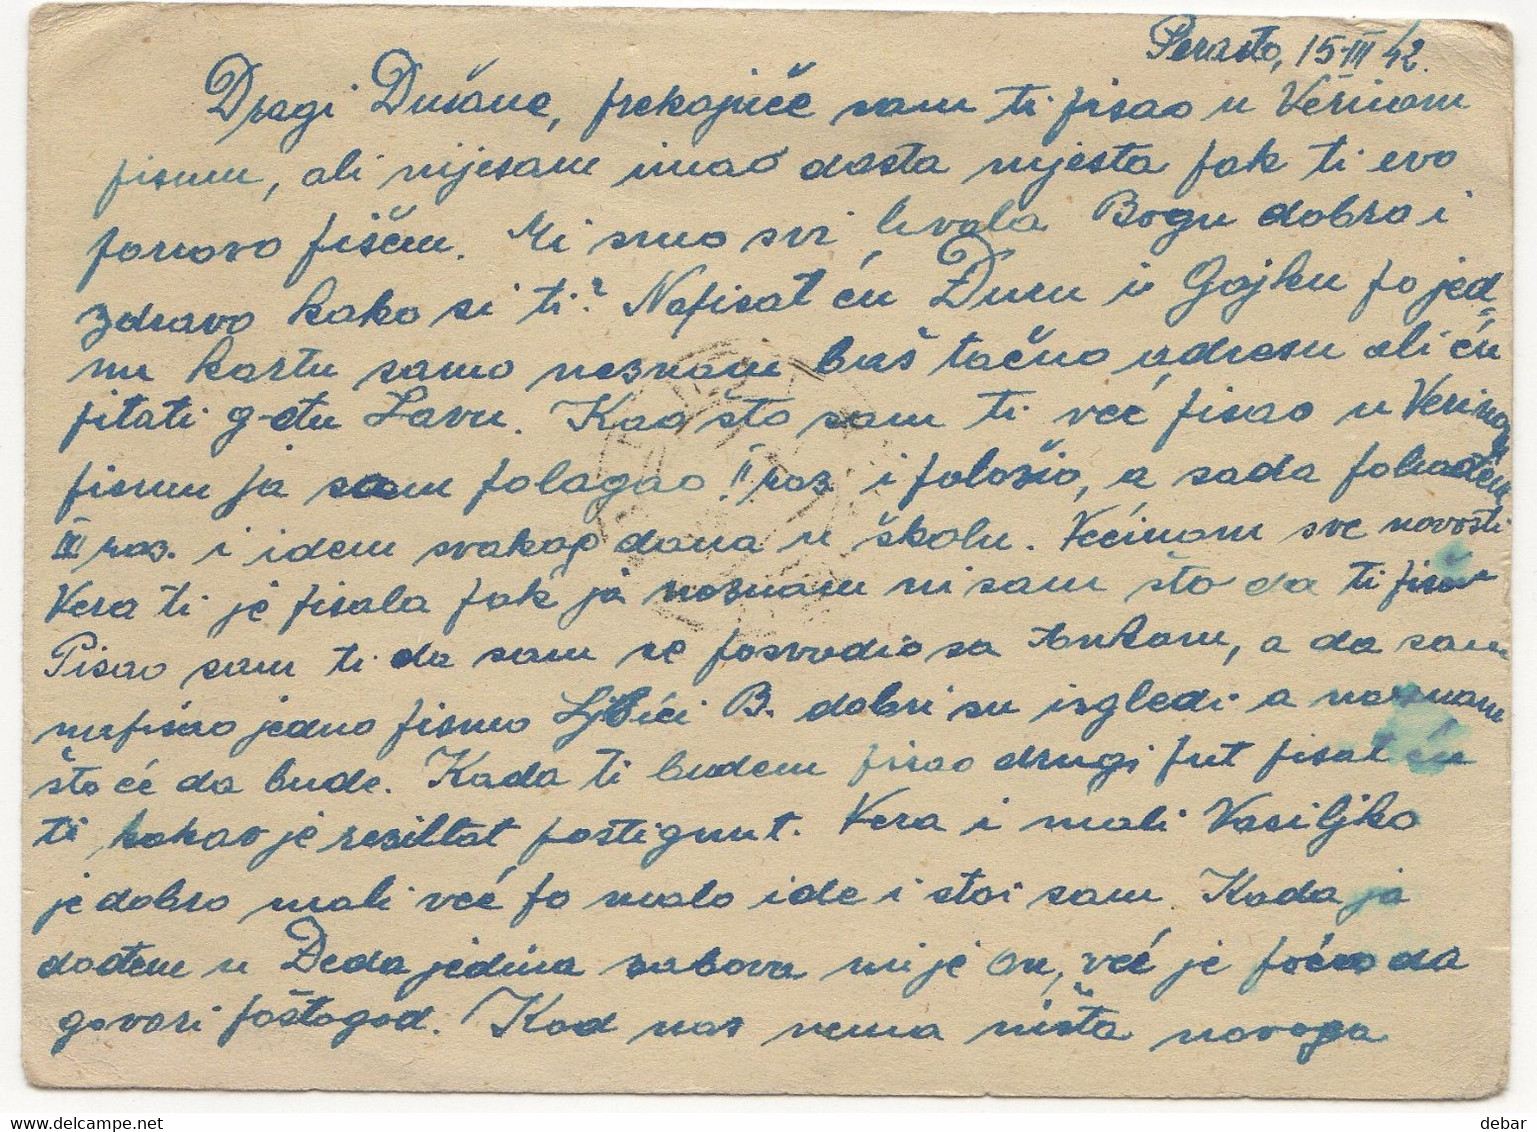 Perasto, 15-III 42.
Dragi Dušane, prekojuče sam ti pisao u Verinom
pismu, ali nijesam imao dosta mjesta pak ti evo
ponovo pišem. Mi smo svi hvala Bogu dobro i
zdravo kako si ti? Napisat ću Đuru i Gojku po jed=
nu kartu samo neznam baš tačno adresu ali ću
pitati g-đu Savu. Kao što sam ti već pisao u Verinom
pismu ja sam polagao II raz i položio, a sada pohađam
III raz. i idem svakog dana u školu. Većinom sve novosti
Vera ti je pisala pak ja neznam ni sam što da ti pišem
Pisao sam ti da sam se posvadio sa Ankom, a da sam
napisao jedno pismo B. dobri su izgledi a neznam
što će da bude. Kada ti budem pisao drugi put pisat ću
ti kakav je resultat postignut. Vera i mali Vasiljko
je dobro mali već po malo ide i stoi sam. Kada ja
dođem u Deda jedina zabava mi je on, već je počeo da
govori poštogod. Kod nas nema ništa novoga
debar